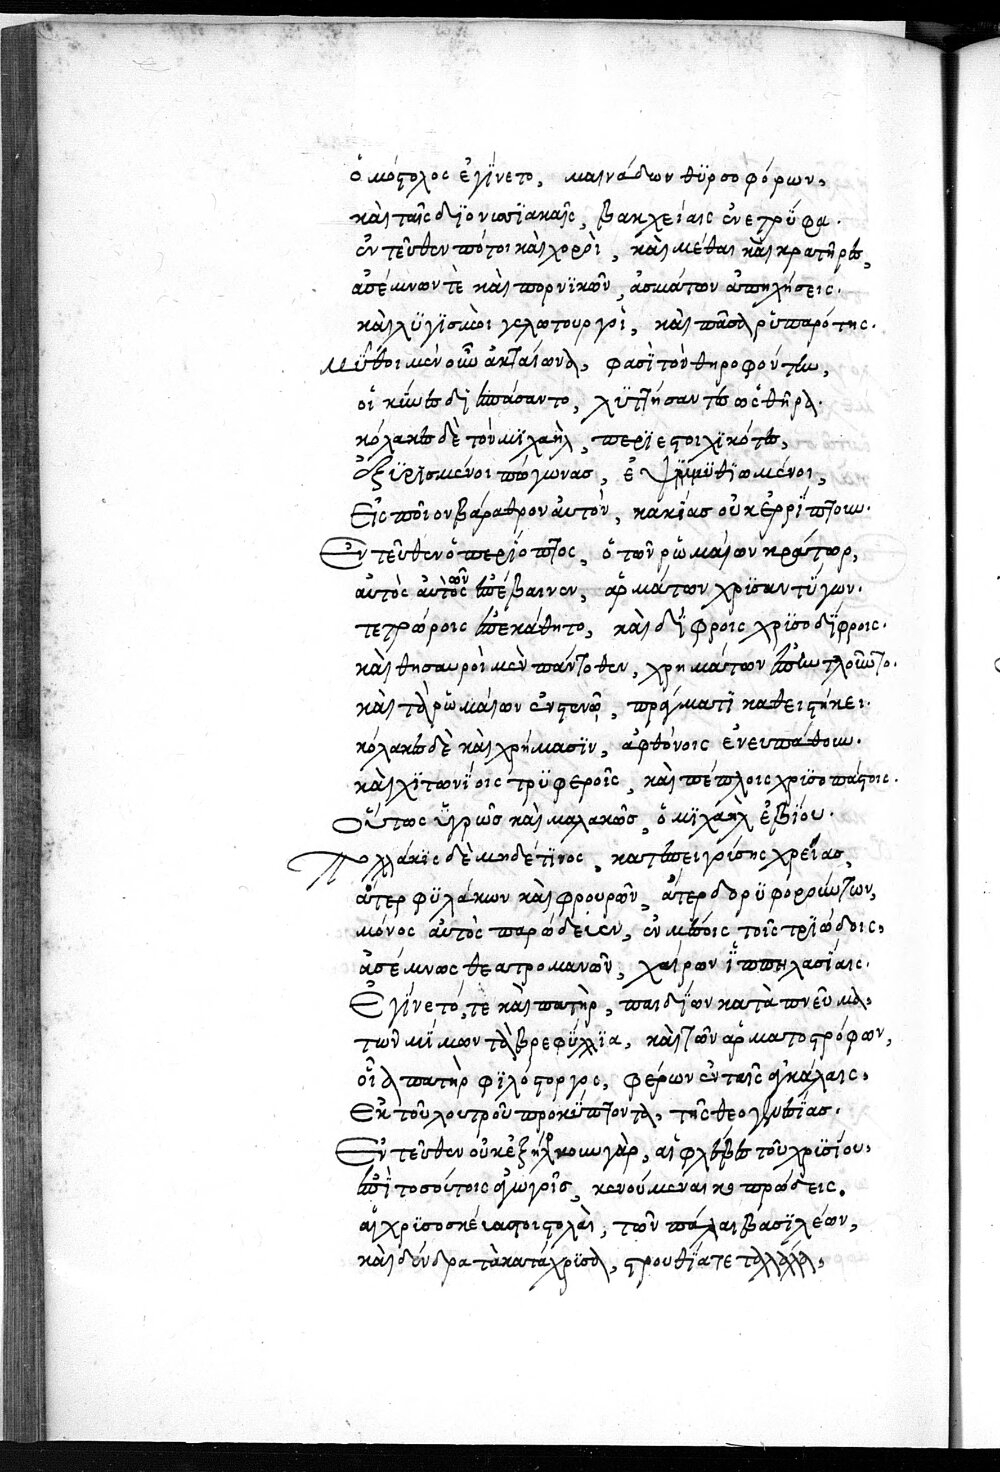 ὁ μόστολος ἐγίνετο, μαινάδων θϋρσοφόρων,
καὶ ταῖς διονυσϊακαῖς, βακχείαις ἐνετρύφα.
ἐντεῦθεν πότοι καὶ χοροὶ, καὶ μέθαι καὶ κρατῆρες,
ἀσέμνων τὲ καὶ πορνϊκῶν, ἀσμάτων ἀπηχήσεις.
καὶ λϋγϊσμοὶ γελωτουργοὶ, καὶ πᾶσα ρϋπαρότης.
Μῦθοι μὲν οὖν ἀκταίωνα, φασὶ τὸν θηροφόντην,
οἱ κύνες δϊεσπάσαντο, λϋττήσαντες ὡς θῆρα.
κόλακες δὲ τὸν μϊχαὴλ, περϊεστοιχϊκότες,
ὀξϋρισμένοι πώγωνας, ἐψιμμϋθϊωμένοι,
Εἰς ποῖον βάραθρον αὐτὸν, κακίας οὐκ ἐρρίπτουν.
Ἐντεῦθεν ὁ περίοπτος, ὁ τῶν ρωμαίων κράτωρ,
αὐτὸς αὐτὸς ἐπέβαινεν, ἁρμάτων χρϋσαντύγων.
τετρώροις ἐπεκάθητο, καὶ δίφροις χρϋσοδίφροις.
καὶ θησαυροὶ μὲν πάντοθεν, χρημάτων ἐξηντλοῦντο.
καὶ τὰ ρωμαίων ἐν στενῷ, πράγματα καθειστήκει.
κόλακες δὲ καὶ χρήμασϊν, ἀφθόνοις ἐνευπάθουν.
καὶ χϊτωνίοις τρϋφεροῖς, καὶ πέπλοις χρϋσοπάστοις.
Οὕτως ὑγρῶς καὶ μαλακῶς, ὁ μϊχαὴλ ἐβίου.
Πολλάκϊς δὲ μηδέ τϊνος, κατεπειγούσης χρείας,
ἄτερ φϋλάκων καὶ φρουρῶν, ἄτερ δορϋφορούντων,
μόνος αὐτὸς παρώδευεν, ἐν μέσοις τοῖς τριόδοις,
ἀσέμνως θεατρομανῶν, χαίρων ἱππηλασίαις.
Ἐγίνετό τε καὶ πατὴρ, παιδίων κατὰ πνεῦμα,
τῶν μίμων τὰ βρεφύλλϊα, καὶ τῶν ἁρματοτρόφων,
οἷα πατὴρ φιλόστοργος, φέρων ἐν ταῖς ἀγκάλαις,
Ἐκ τοῦ λουτροῦ προκύπτοντα, τῆς θεογενεσίας.
Ἐντεῦθεν οὐκ ἐξήρκουν γὰρ, αἱ φλέβες τοῦ χρϋσίου,
ἐπὶ τοσούτοις ἀγωγοῖς, κενούμεναι καὶ πράσεις.
αἱ χρϋσοσκεύαστοι στολαὶ, τῶν πάλαι βασϊλέων,
καὶ δένδρα τὰ κατάχρϋσα, στρουθία τε τὰ λάλα,